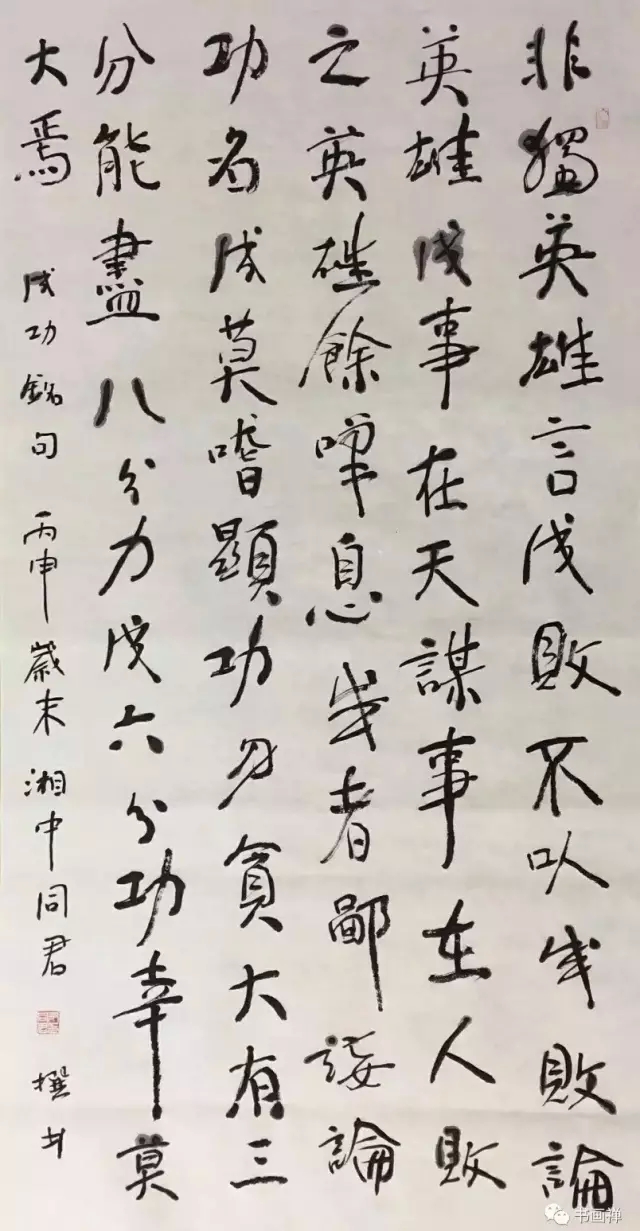 非獨英雄言成敗不以成敗論
英雄成事在天謀事在人敗
之英雄餘嘆息成者鄙諉論
功名成莫嗜顯功勿貪大有三
分能盡八分力成六分功幸莫
大焉
成功銘句 丙申歲末 湘中同君 撰书
书画禅